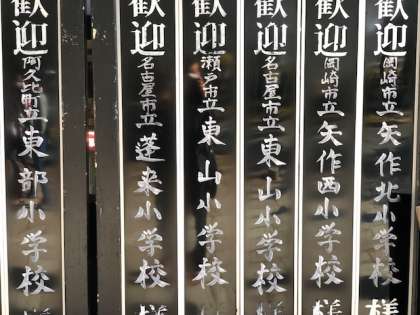 歓迎 岡崎市立矢作北小学校 様
歓迎 岡崎市立矢作西小学校 様
歓迎 名古屋市立東山小学校 様
歓迎 瀬戸市立東山小学校 様
歓迎 名古屋市立蓬来小学校 様
歓迎 阿久比町立東部小学校 様